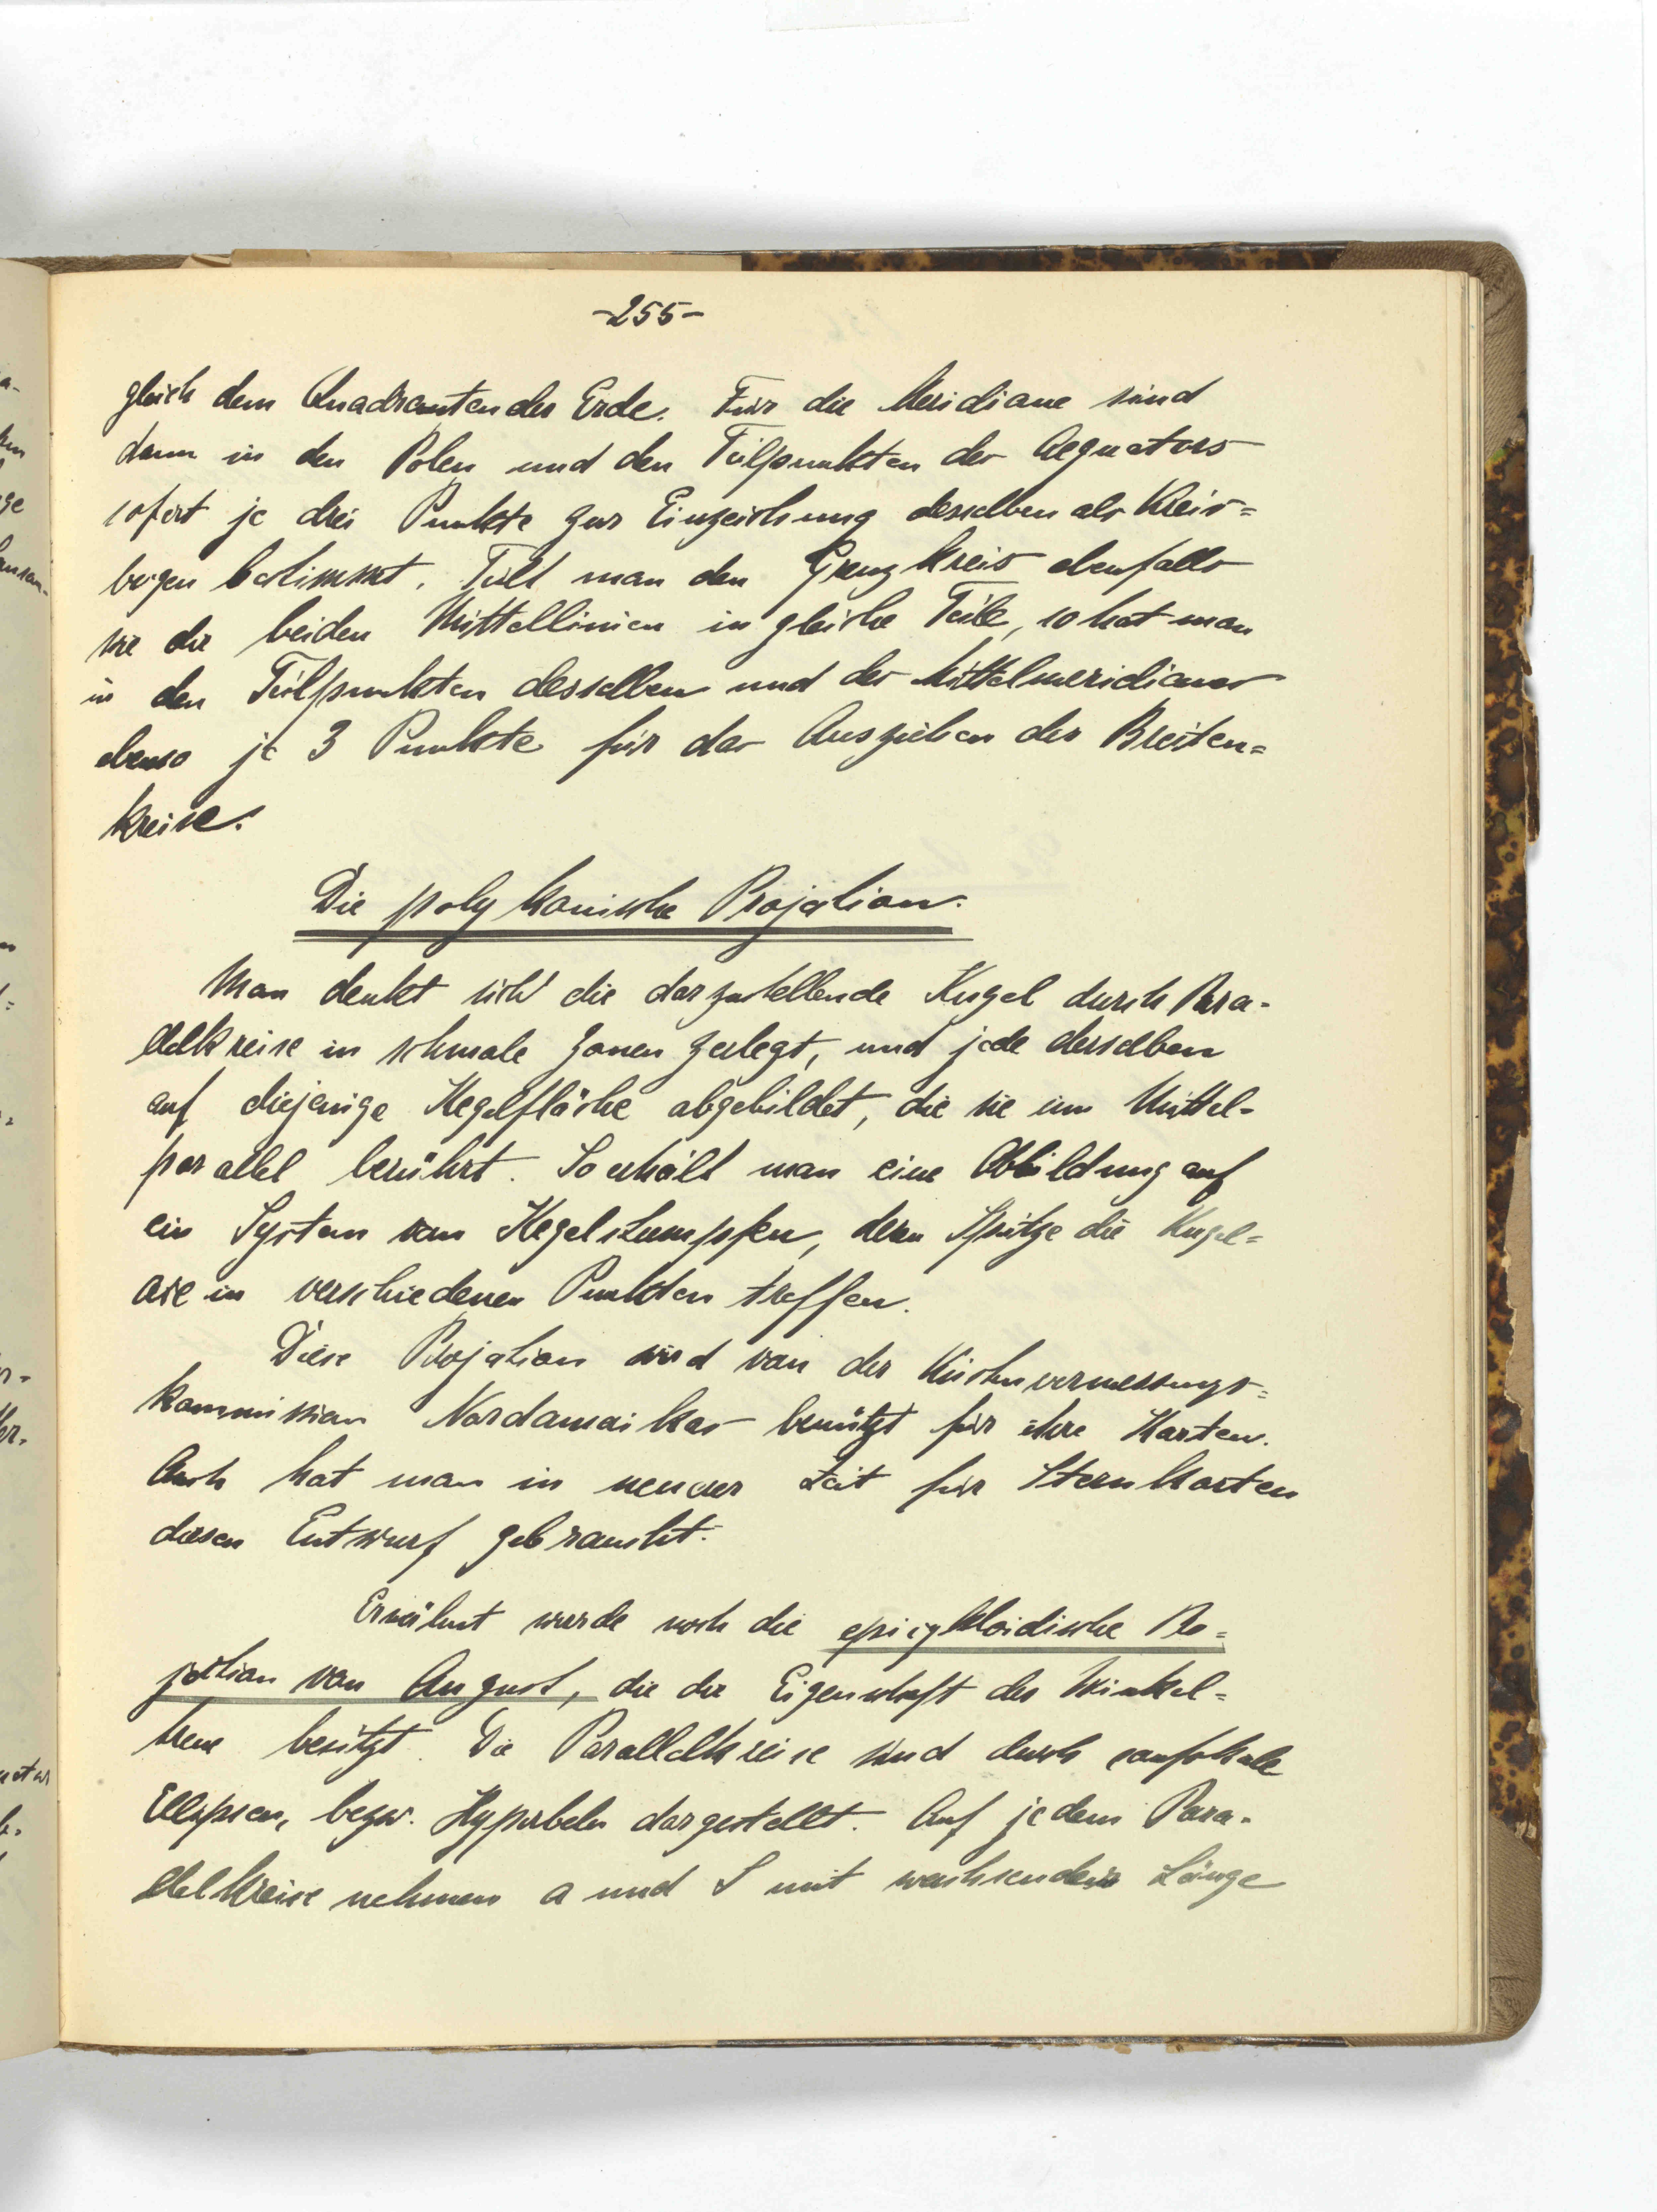 -255-
gleich dem Quadranten der Erde. Für die Meridiane sind
dann in den Polen und den Teilpunkten des Aequators
sofort je drei Punkte zur Einzeichnung derselben als Kreis=
bogen bestimmt. Teilt man den Grenzkreis ebenfalls
wie die beiden Mittellinien in gleiche Teile, so hat man
in den Teilpunkten desselben und des Mittelmeridianes
ebenso je 3 Punkte für das Ausziehen der Breiten=
kreise.
Die polykonische Projektion.
Man denkt sich die darzustellende Kugel durch Para-
llelkreise in schmale Zonen zerlegt, und jede derselben
auf diejenige Kegelfläche abgebildet, die sie im Mittel-
parallel berührt. So erhält man eine Abbildung auf
ein System von Kegelstumpfen, deren Spitze die Kugel=
axe in verschiedenen Punkten treffen.
Diese Projektion wird von der Küstenvermessungs=
kommission Nordamerikas benützt für ihre Karten.
Auch hat man in neuerer Zeit für Sternkarten
diesen Entwurf gebraucht.
Erwähnt wurde noch die epicykloidische Pro=
jektion von August, die die Eigenschaft der Winkel=
treue besitzt. Die Parallelkreise sind durch confokale
Ellipsen, bezw. Hyperbeln dargestellt. Auf jedem Para-
llelkreise nehmen a und S mit wachsender Länge